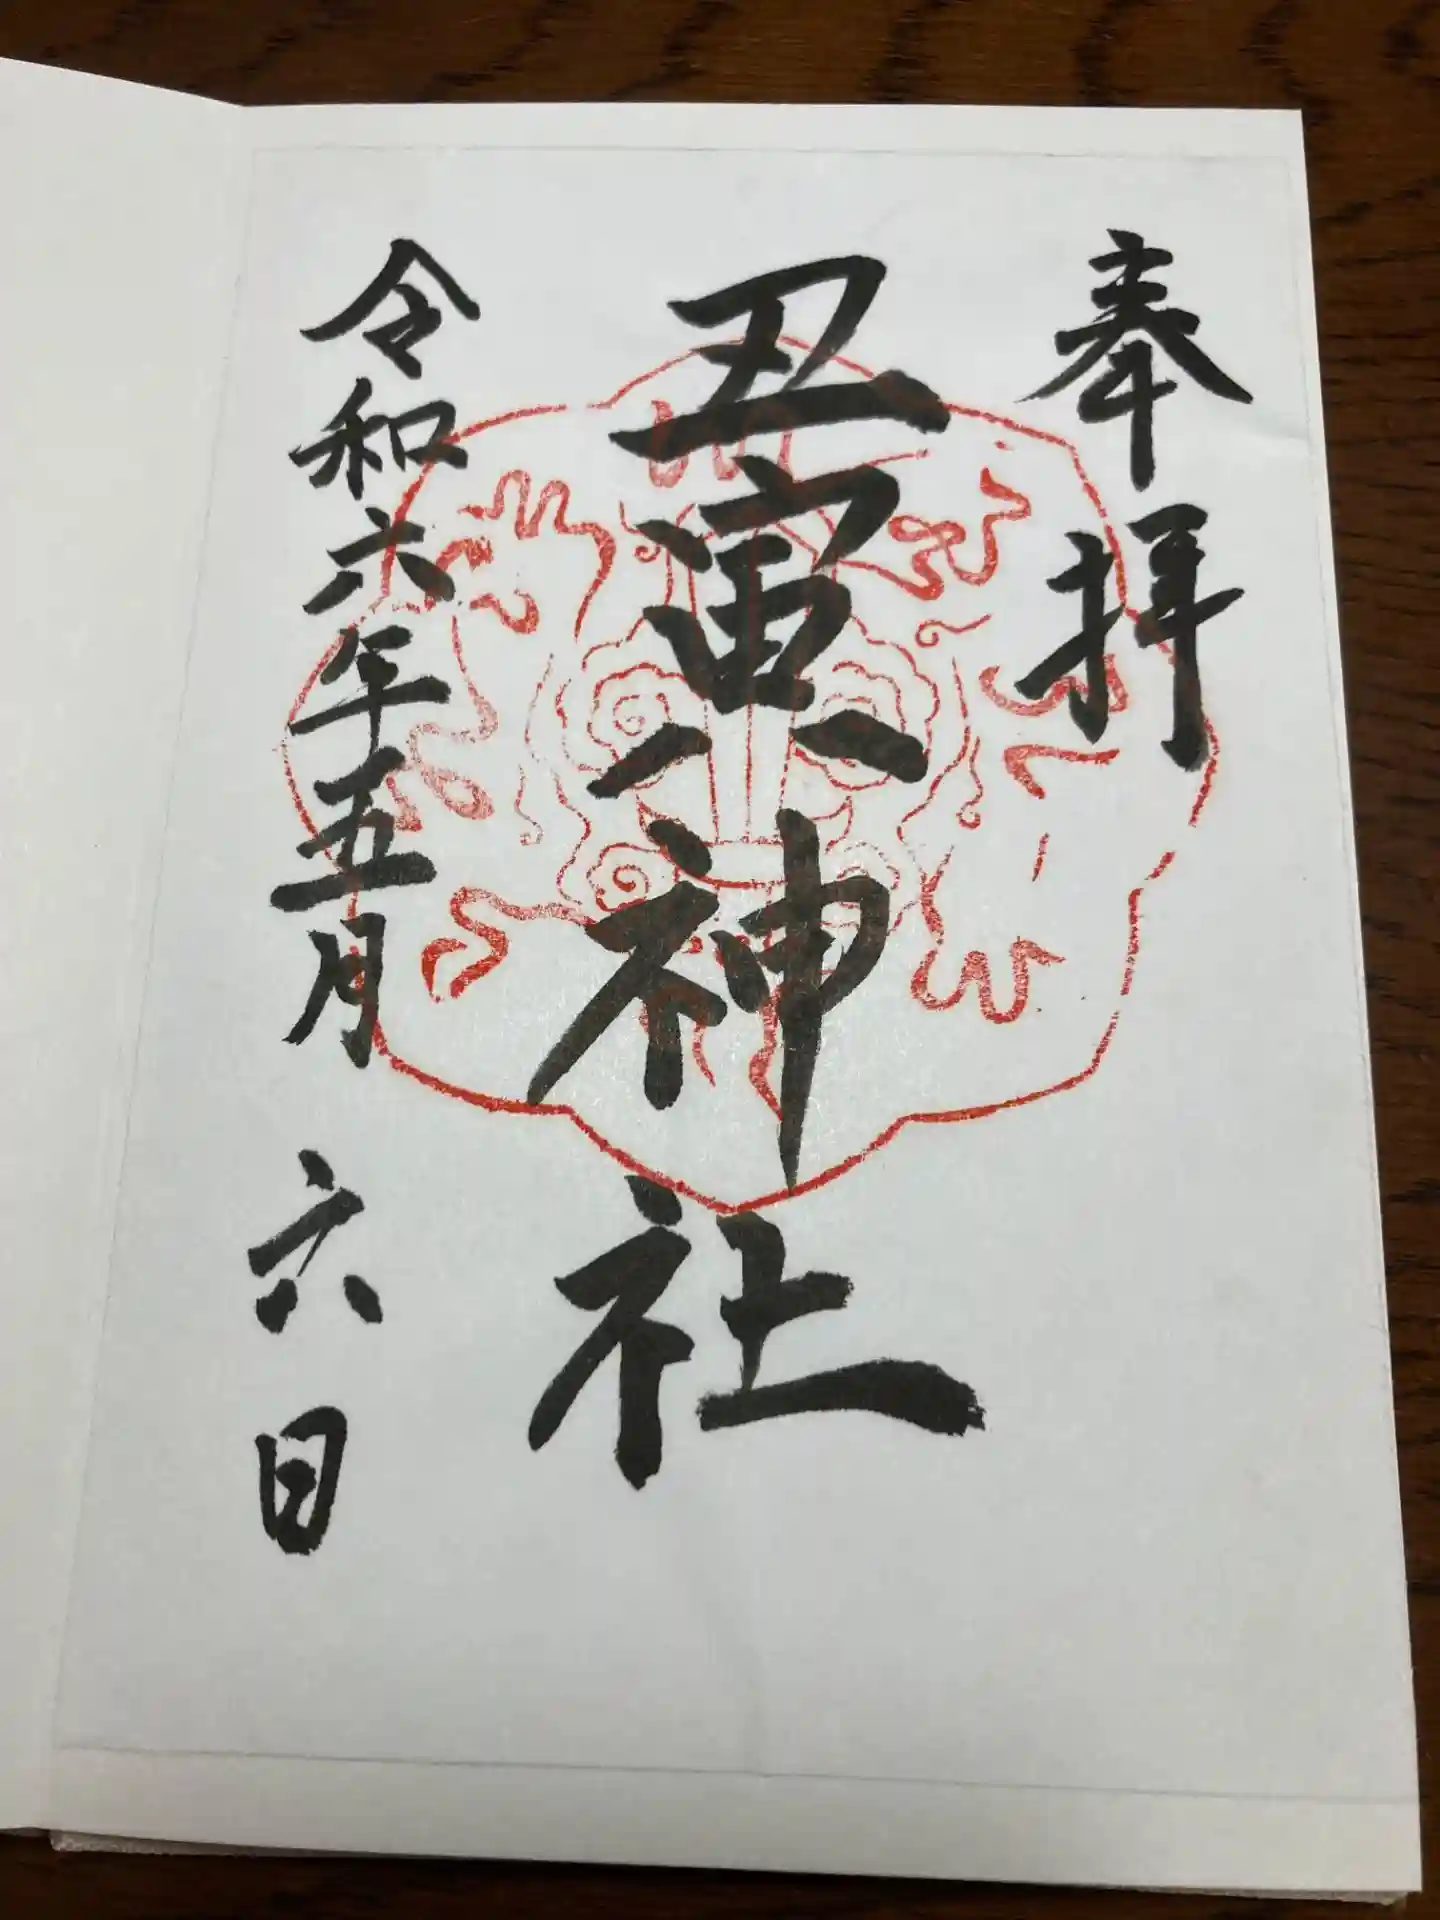 奉拝
丑寅神社
令和六年五月六日